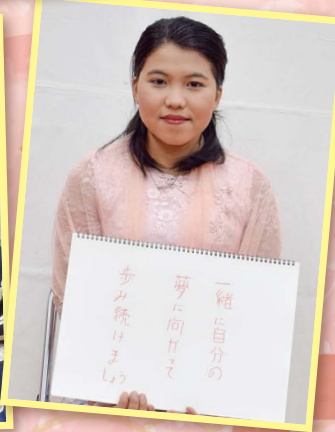 一緒に自分の
夢に向かって
歩み続けましょう